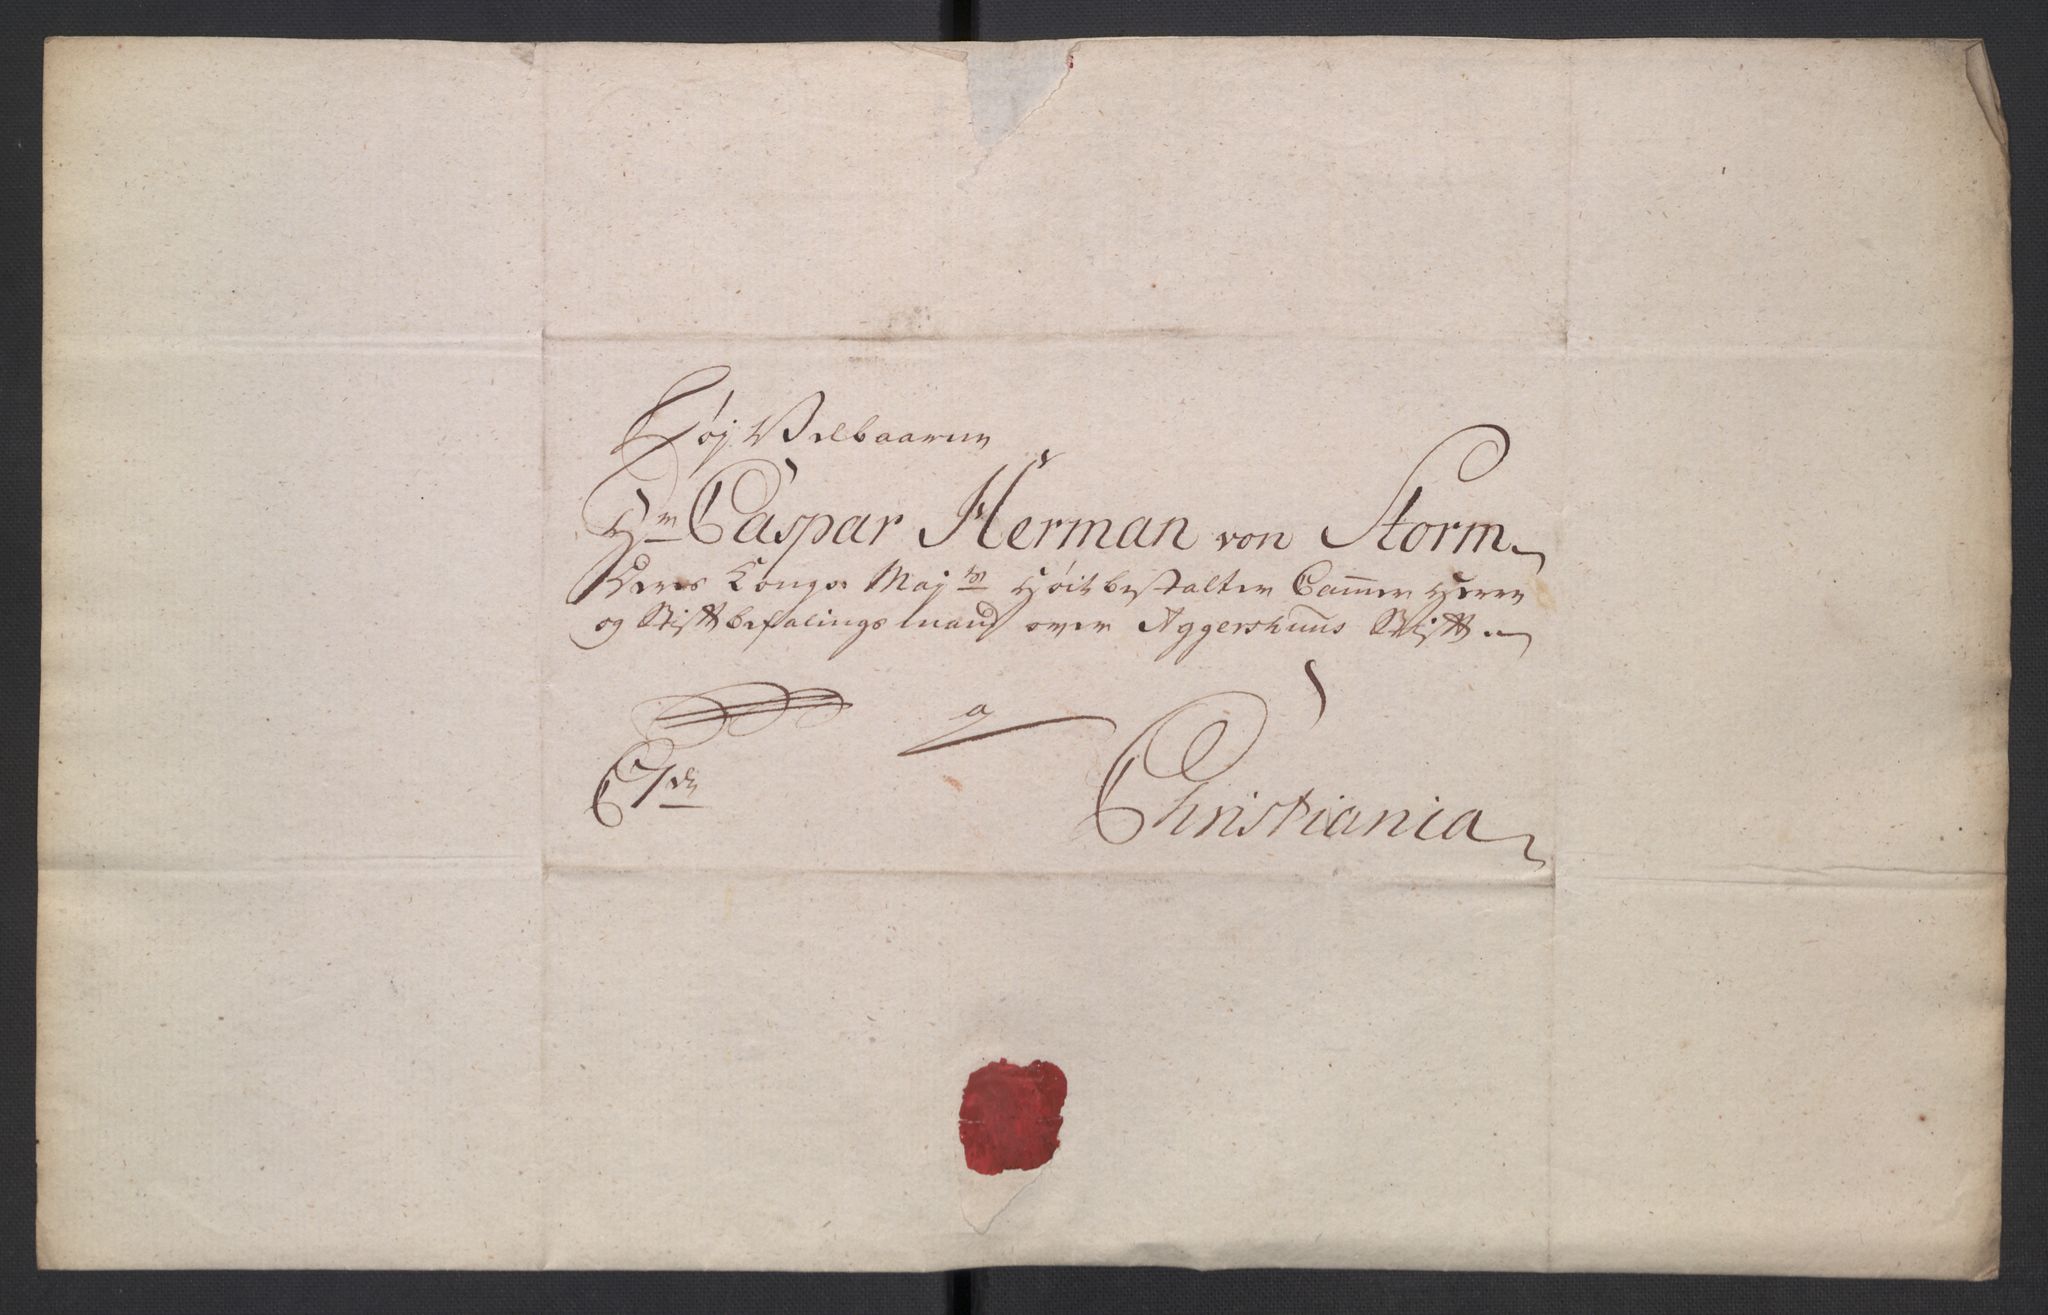 Høj Velbaarne
Hr Caspar Herman von Storm
Deres Kongs. Maj:ts Høit bestalter Cammer Herre
og Stiftbefalings mand over Aggershuus Stift
a
Christiania